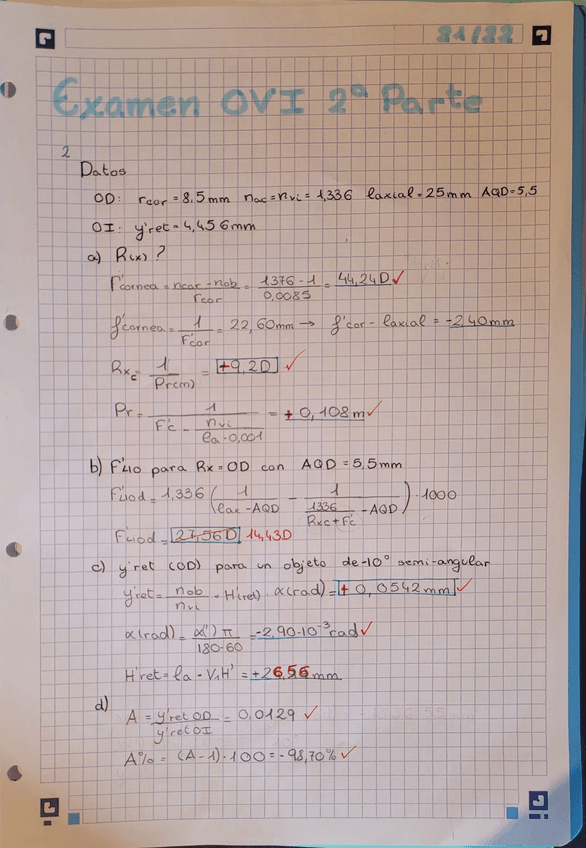 21/22
Examen OVI 2ª Parte
2
Datos
OD: rcor = 8,5mm nac = nvi = 1,336 laxial = 25mm AQD = 5,5
OI: y'ret = 4,456mm
a) R(x) ?
F'cornea = ncor - nob / rcor = 1376 - 1 / 0,0085 = 44,24D ✓
f'cornea = 1 / F'cor = 22,60mm → f'cor - laxial = -2,40mm
Rxc = 1 / Pr(m) = +9,2D ✓
Pr = 1 / F'c - nvi / la·0,001 = + 0,108m ✓
b) F'lio para Rx = OD con AQD = 5,5mm
F'liod = 1,336 ( 1 / lax - AQD - 1 / 1336 / Rxc + F'c - AQD ) · 1000
F'liod = 27,56D 14,43D
c) y'ret (OD) para un objeto de -10° semi-angular
y'ret = nob / nvi · H'(ret) · α(rad) = + 0,0542mm ✓
α(rad) = α(') π / 180·60 = -2,90·10⁻³ rad ✓
H'ret = la - V₁H' = +26,56mm
d)
A = y'ret OD / y'ret OI = 0,0129 ✓
A% = (A - 1) · 100 = -98,70% ✓